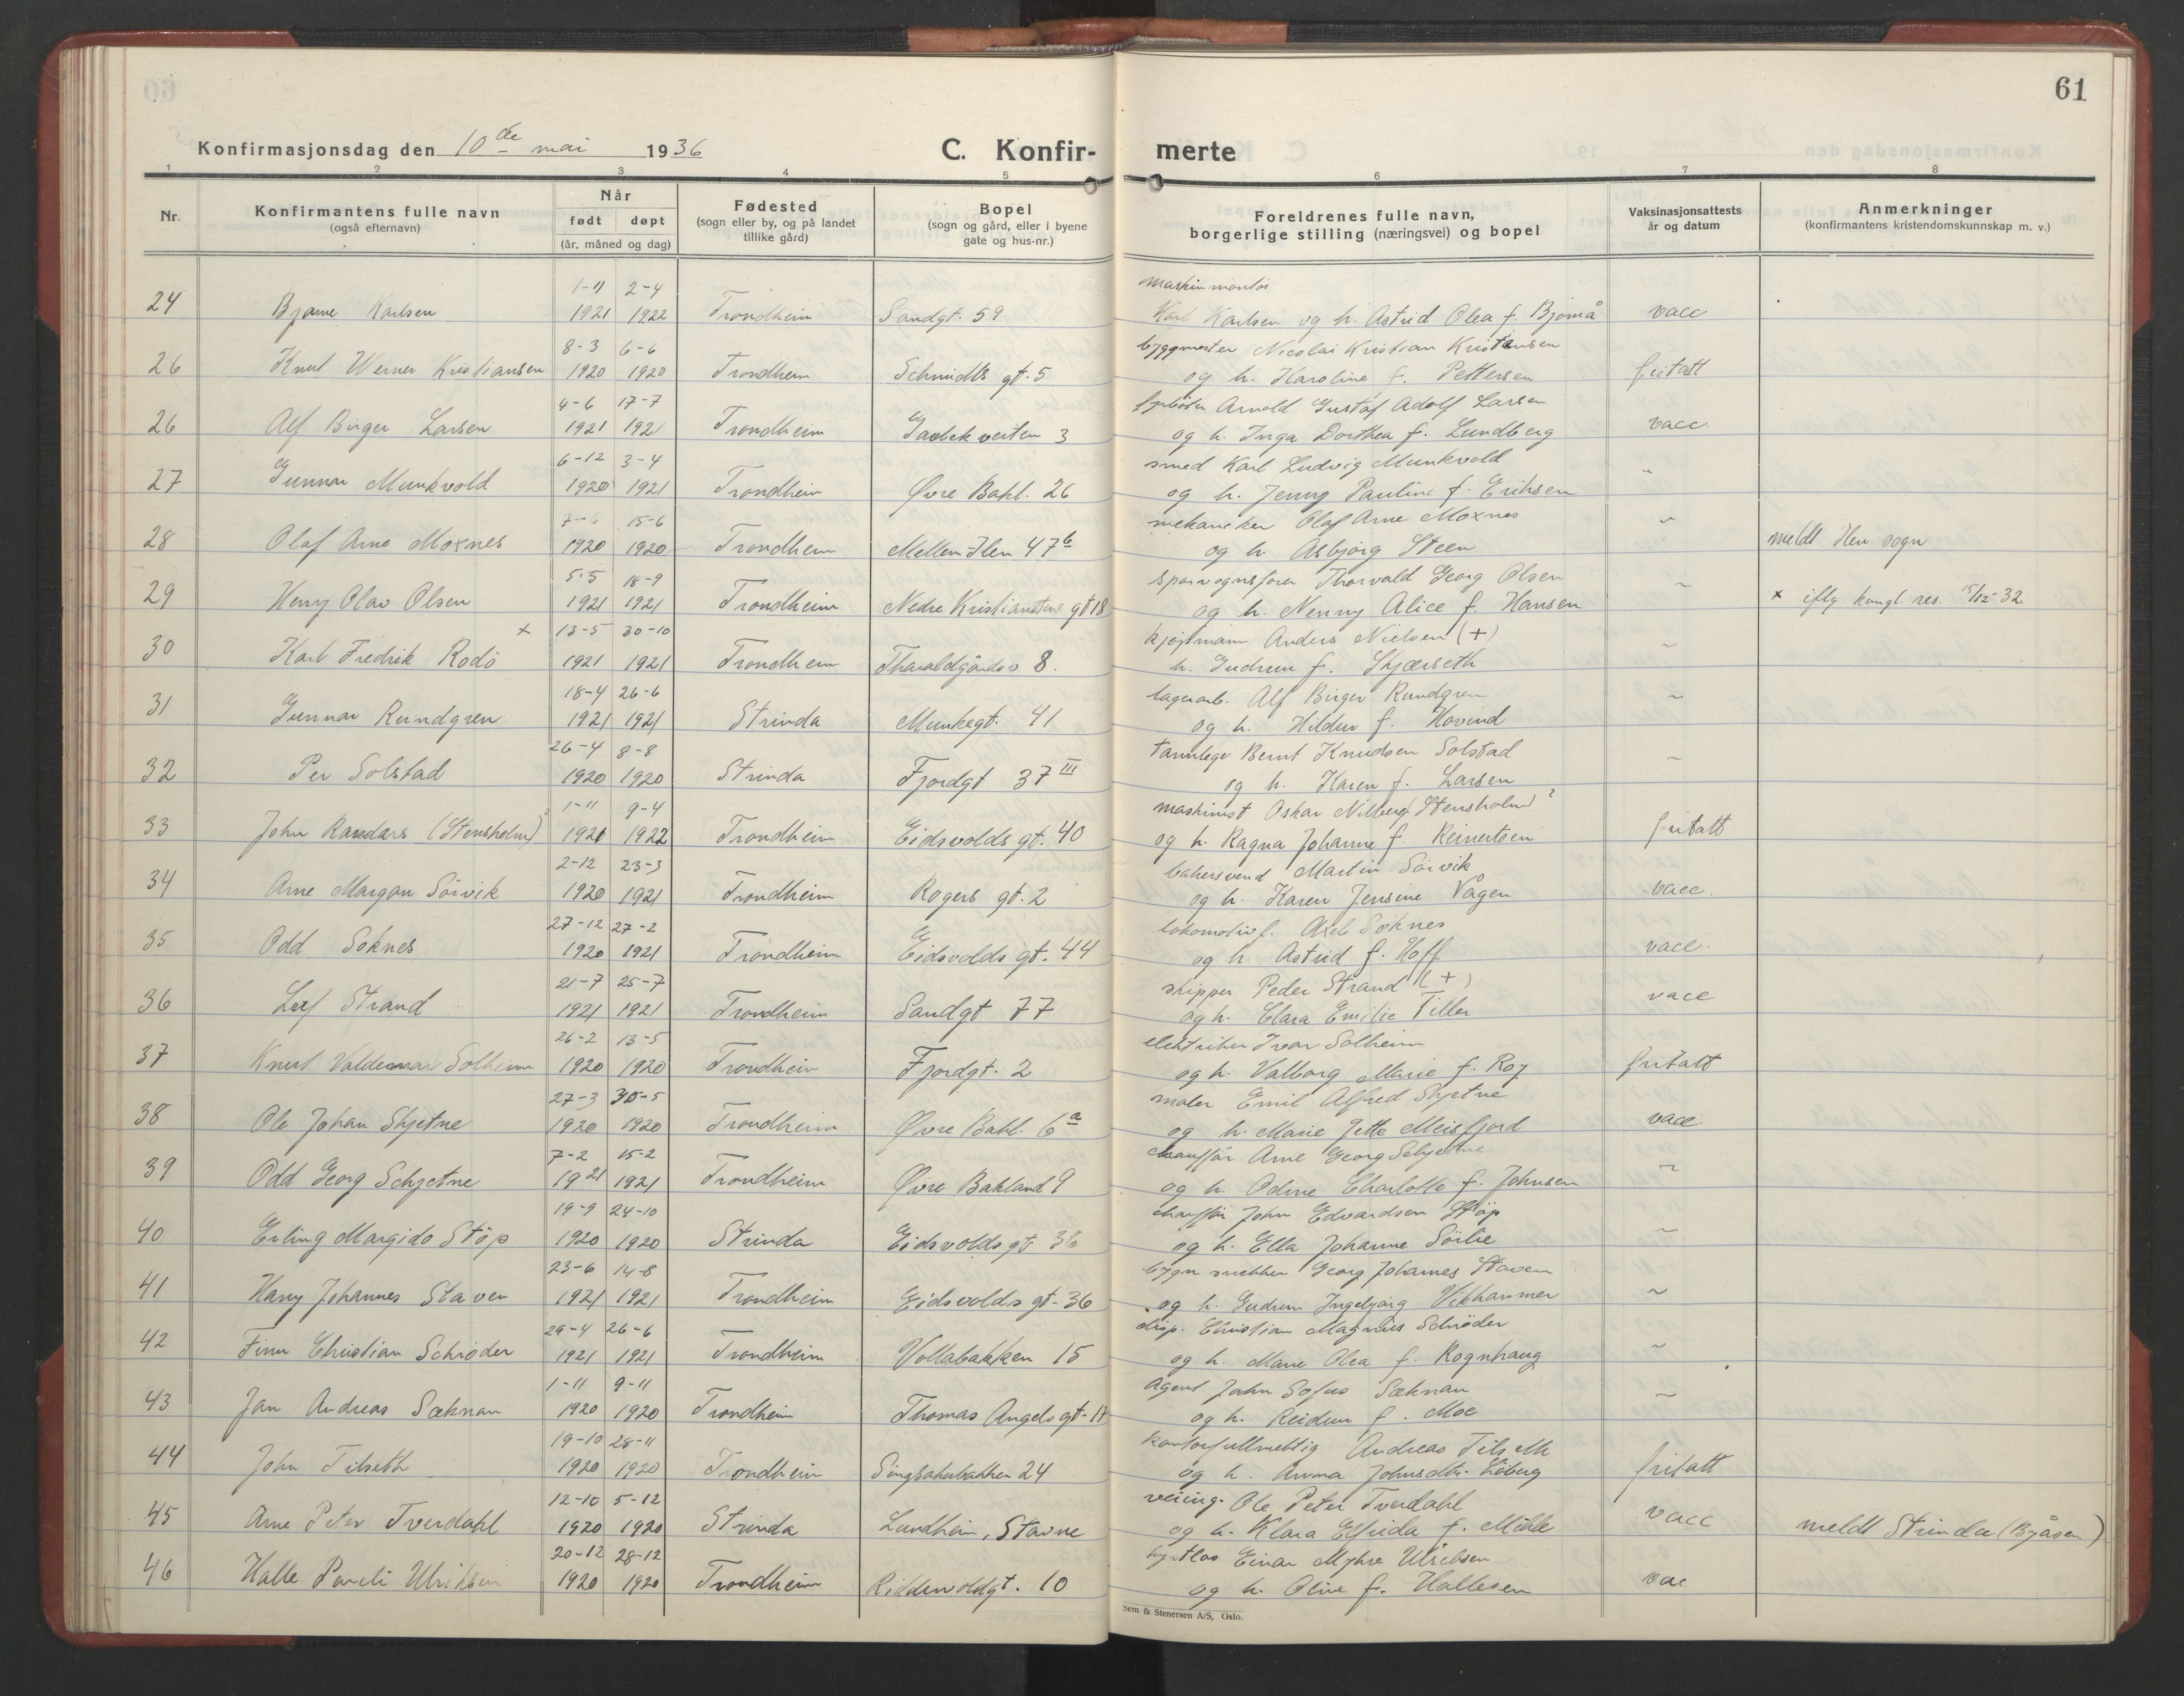 61
Konfirmasjonsdag den 10de mai 1936
C. Konfir- merte
1 2 3 4 5 6 7 8
Nr.
Konfirmantens fulle navn
(også efternavn)
Når
født døpt
(år, måned og dag)
Fødested
(sogn eller by, og på landet
tillike gård)
Bopel
(sogn og gård, eller i byene
gate og hus-nr.)
Foreldrenes fulle navn,
borgerlige stilling (næringsvei) og bopel
Vaksinasjonsattests
år og datum
Anmerkninger
(konfirmantens kristendomskunnskap m. v.)
1-11 2-4 maskinmontør
24 Bjarne Karlsen 1921 1922 Trondheim Sandgt. 59 Karl Karlsen og h. Astrid Olea f. Bjømå vacc
8-3 6-6 byggmester Nicolai Kristian Kristiansen
26 Knut Werner Kristiansen 1920 1920 Trondheim Schmidts gt. 5 og h. Karoline f. Pettersen fritatt
4-6 17-7 Arnold Gustaf Adolf Larsen
26 Alf Birger Larsen 1921 1921 Trondheim 3 og h. Inga Dorthea f. Lundberg vacc.
6-12 3-4 smed Karl Ludvig Munkvold
27 Gunnar Munkvold 1920 1921 Trondheim Øvre Bakl. 26 og h. Jenny Pauline f. Eriksen "
7-6 15-6 mekaniker Olaf Arne Moxnes
28 Olaf Arne Moxnes 1920 1920 Trondheim Mellem Ilen 47b og h. Asbjørg Steen " meldt Ilen sogn
5-5 18-9 sporvognsfører Thorvald Georg Olsen
29 Henry Olav Olsen 1921 1921 Trondheim Nedre Kristianstens gt 18 og h. Nenny Alice f. Hansen " x iflg kongl. res. 15/12-32
x 13-5 30-10 kjøpmann Anders Nielsen (+)
30 Karl Fredrik Rodø 1921 1921 Trondheim Tharaldgårdsv 8. h. Gudrun f. Skjærseth "
18-4 26-6 lagerarb. Alf Birger Rundgren
31 Gunnar Rundgren 1921 1921 Strinda Munkegt. 41 og h. Hildur f. Hovind "
26-4 8-8 tannlege Bernt Knudsen Solstad
32 Per Solstad 1920 1920 Strinda Fjordgt 37 III og h. Karen f. Larsen "
1-11 9-4 maskinist Oskar Nilberg Stensholm ?
33 John Randars (Stensholm) ? 1921 1922 Trondheim Eidsvolds gt. 40 og h. Ragna Johanne f. Reinertsen fritatt
2-12 23-3 bakersvend Martin Sørvik
34 Arne Margon Sørvik 1920 1921 Trondheim Rogers gt. 2 og h. Karen Jensine Vågen vacc.
27-12 27-2 lokomotivf. Axel Soknes
35 Odd Soknes 1920 1921 Trondheim Eidsvolds gt. 44 og h. Astrid f. Hoff vacc.
21-7 25-7 skipper Peder Strand (+)
36 Leif Strand 1921 1921 Trondheim Sandgt 77 og h. Clara Emilie Tiller vacc
26-2 13-5 elektriker Ivar Solheim
37 Knut Valdemar Solheim 1920 1920 Trondheim Fjordgt. 2 og h. Valborg Marie f. Roj fritatt
27-3 30-5 maler Emil Alfred Skjetne
38 Ole Johan Skjetne 1920 1920 Trondheim Øvre Bakl. 6a og h. Marie Jette Meisfjord vacc.
7-2 15-2 chauffør Arne Georg Schjetne
39 Odd Georg Schjetne 1921 1921 Trondheim Øvre Bakland 9 og h. Odine Charlotte f. Johnsen "
19-9 24-10 chauffør John Edvardsen Støp
40 Erling Margido Støp 1920 1920 Strinda Eidsvolds gt 36 og h. Ella Johanne Sørlie "
23-6 14-8 bygn. snekker Georg Johannes Staven
41 Harry Johannes Staven 1921 1921 Trondheim Eidsvolds gt. 36 og h. Gudrun Ingebjørg Vikhammer "
29-4 26-6 disp. Christian Magnus Schrøder
42 Finn Christian Schrøder 1921 1921 Trondheim Vollabakken 15 og h. Marie Olea f. Rognhaug "
1-11 9-11 Agent John Sofus Sæknan
43 Jan Andreas Sæknan 1920 1920 Trondheim Thomas Angels gt. og h. Reidun f. Moe "
19-10 28-11 kontorfullmektig Andreas Tilseth
44 John Tilseth 1920 1920 Trondheim Singsakerbakken 24 og h. Anna Johnsdtr. fritatt
12-10 5-12 Ole Peter Tverdahl
45 Arne Peter Tverdahl 1920 1920 Strinda Lundheim, Stavne og h. Klara Elfrida f. Mikle vacc meldt Strinda (Byåsen)
20-12 28-12 Einar Myhre Ulriksen
46 Halle Ulriksen 1920 1920 Trondheim Riddervoldgt. 10 og h. Olive f. Hallesen vac
Sem & Stenersen A/S, Oslo.